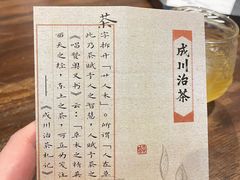 成川治茶
茶
字拆开「廿人木」。所谓「人在草
此乃茶赋予人之智慧，人赋予茶之
《唱赞奥义书》云：「草木之精英
西天之经，东土之茶，可互为笺注
——《成川治茶札记》